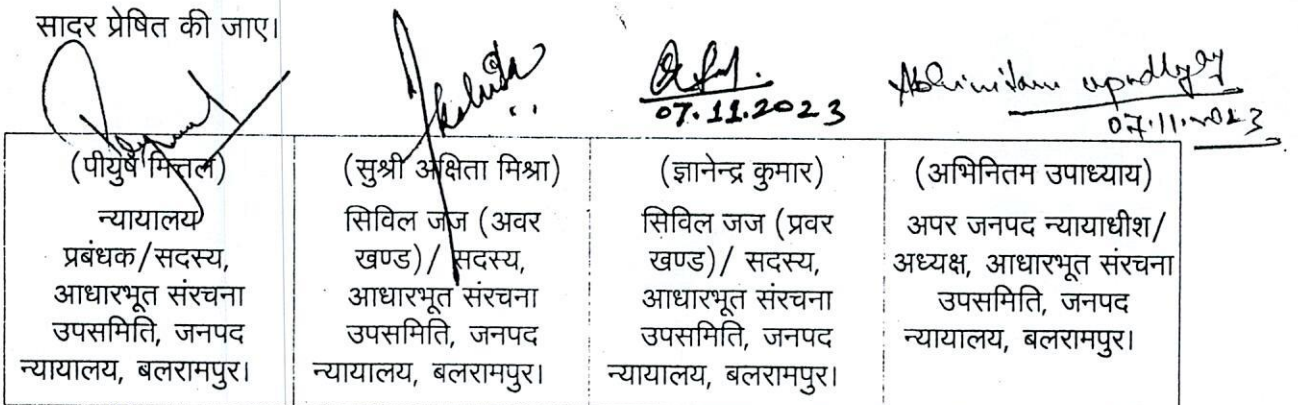 सादर प्रेषित की जाए।
07.11.2023
Abhinitam upadhyay
07.11.2023
(पीयुष मित्तल)
न्यायालय
प्रबंधक/सदस्य,
आधारभूत संरचना
उपसमिति, जनपद
न्यायालय, बलरामपुर।
(सुश्री अक्षिता मिश्रा)
सिविल जज (अवर
खण्ड)/ सदस्य,
आधारभूत संरचना
उपसमिति, जनपद
न्यायालय, बलरामपुर।
(ज्ञानेन्द्र कुमार)
सिविल जज (प्रवर
खण्ड)/ सदस्य,
आधारभूत संरचना
उपसमिति, जनपद
न्यायालय, बलरामपुर।
(अभिनितम उपाध्याय)
अपर जनपद न्यायाधीश/
अध्यक्ष, आधारभूत संरचना
उपसमिति, जनपद
न्यायालय, बलरामपुर।